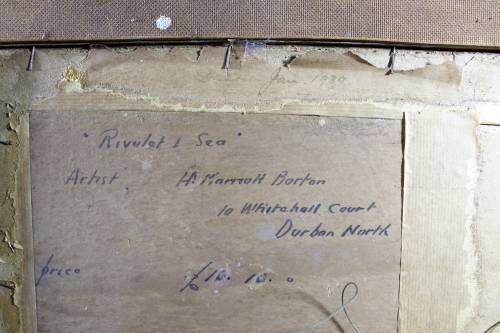 Jan 1939
"Rivulet & Sea"
Artist H. Marriott Burton
10 Whitehall Court
Durban North
price £10. 10. 0